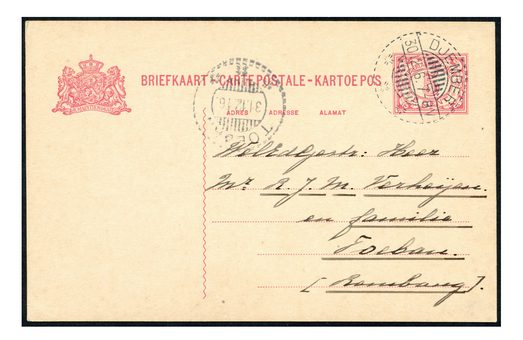 BRIEFKAART - CARTE POSTALE - KARTOE POS
ADRES ADRESSE ALAMAT
DJEMBER
30.12.16.
31.12.16
WelEdgestr: Heer
Mr R. J. M. Verheijen.
en familie
Toeban.
[Rembang].